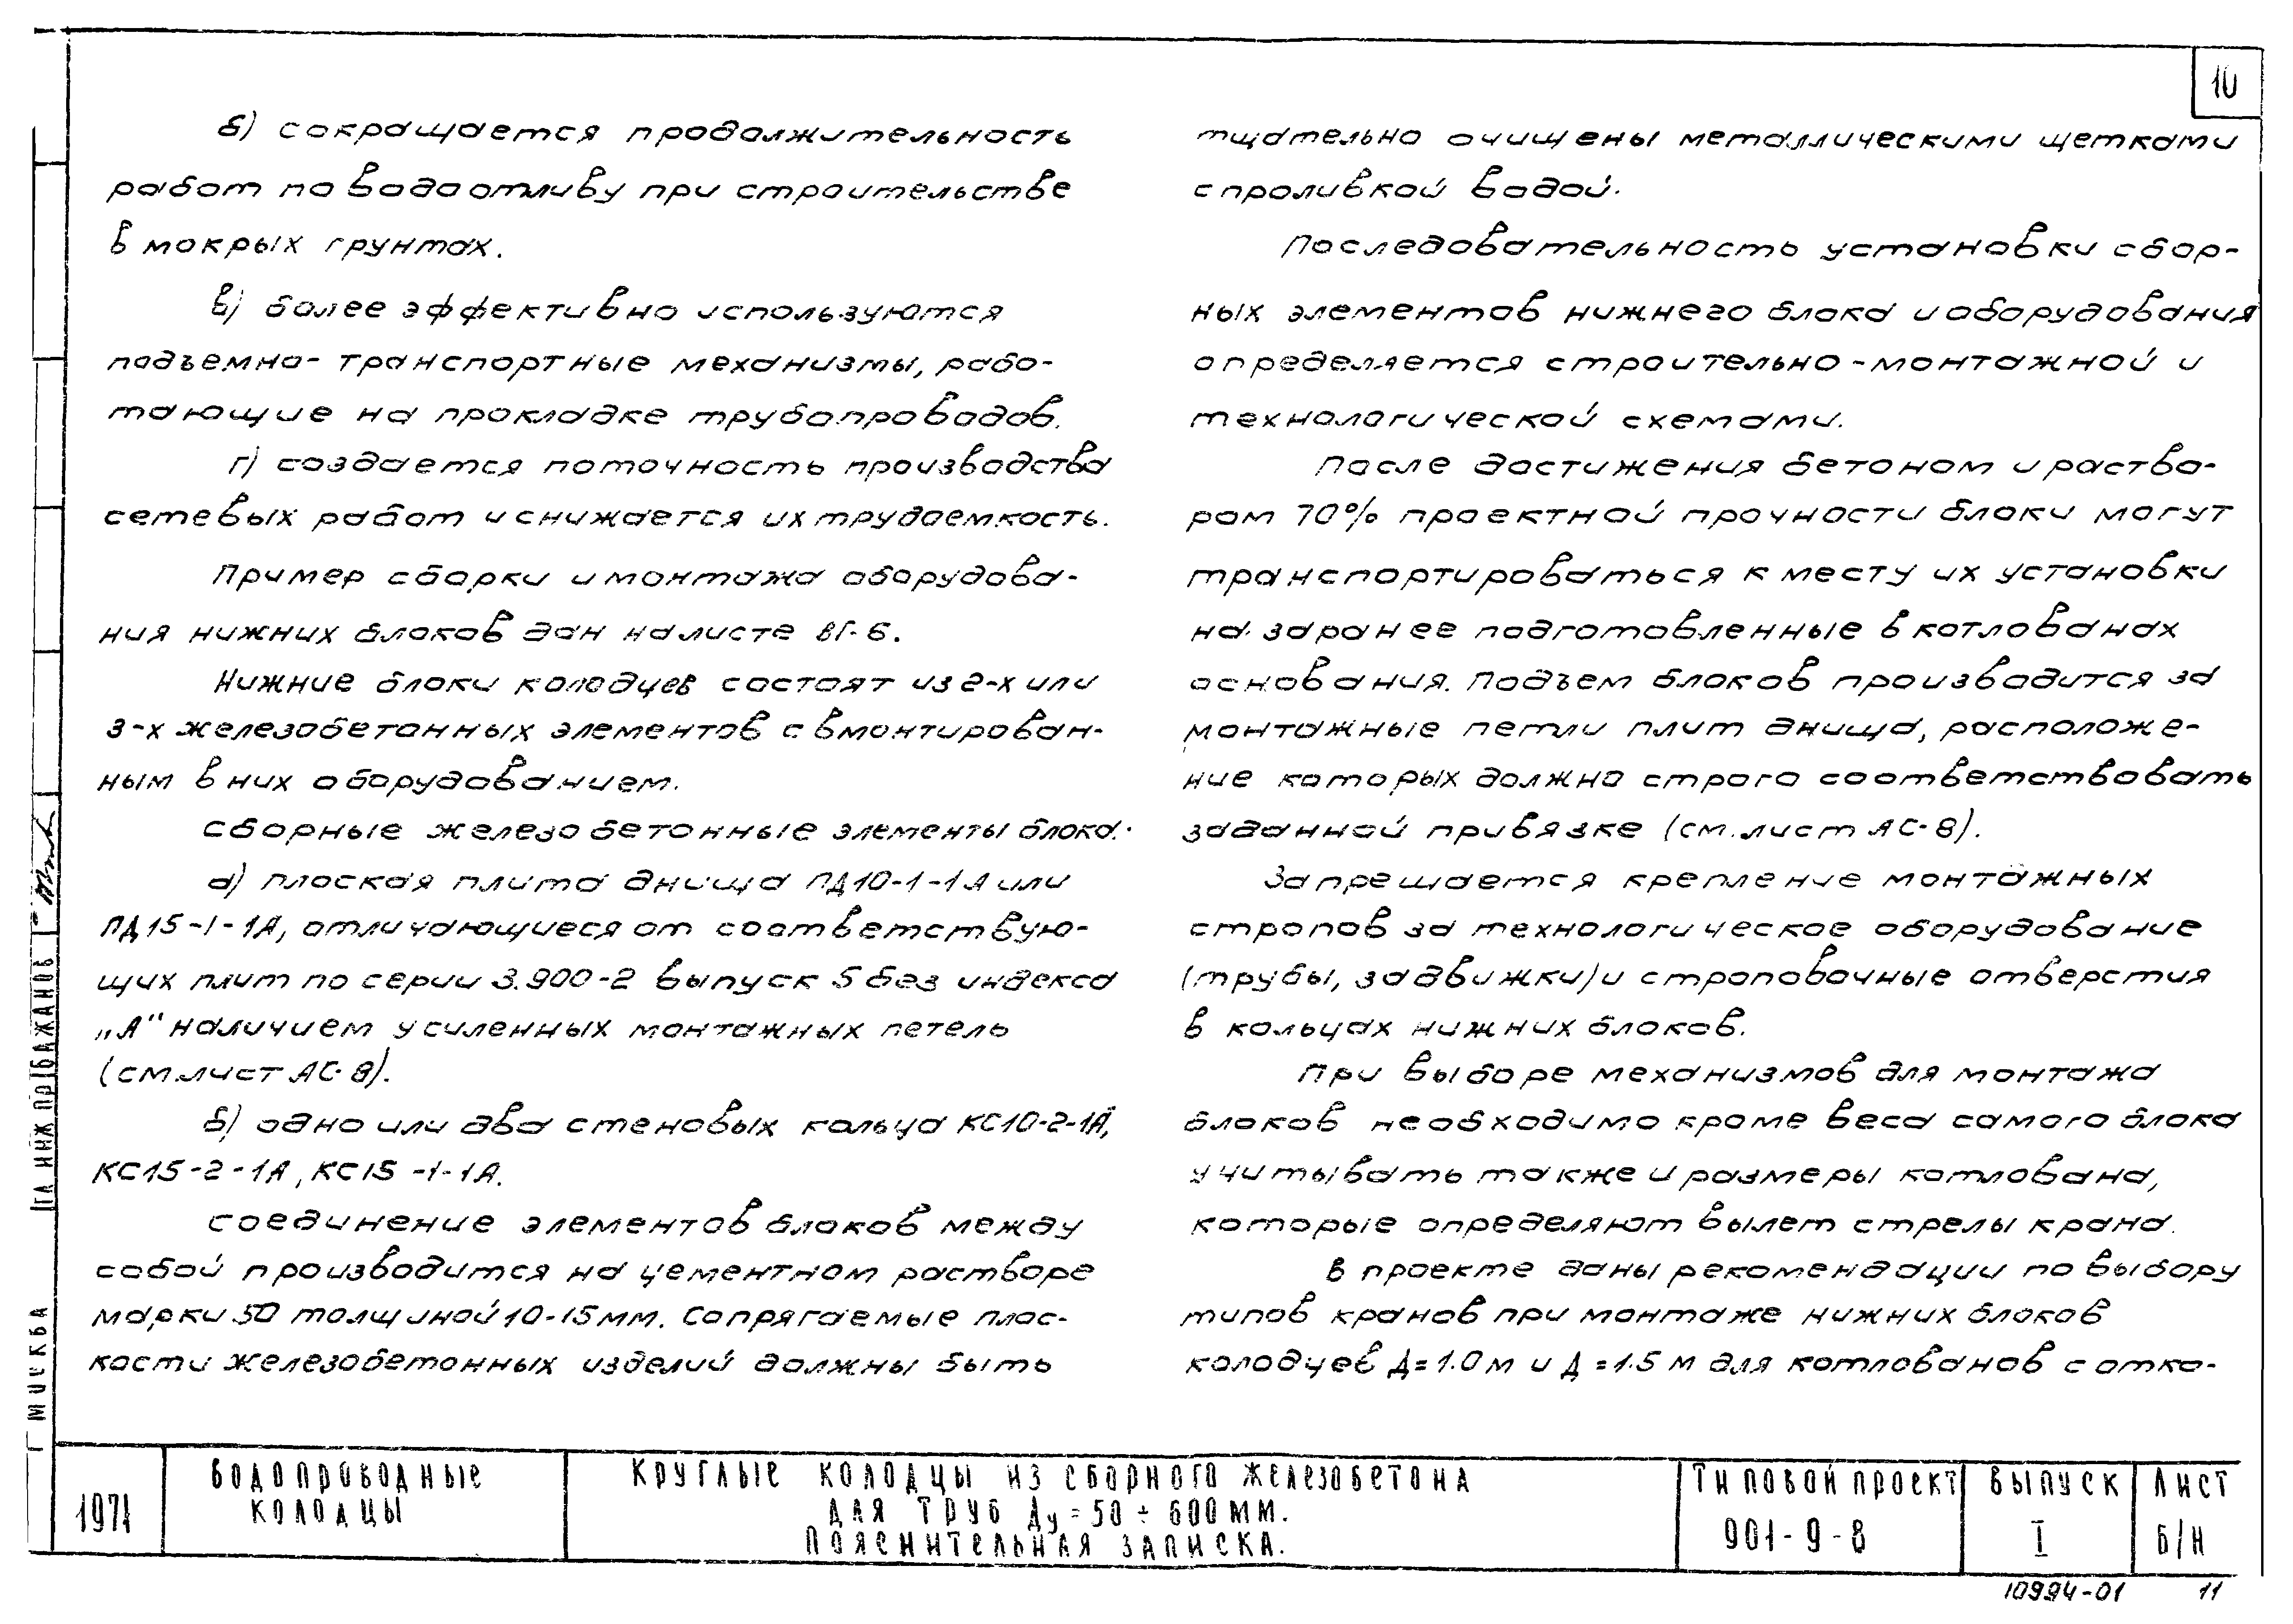 10
б) сокращается продолжительность
работ по водоотливу при строительстве
в мокрых грунтах.
в) более эффективно используются
подъемно-транспортные механизмы, рабо-
тающие на прокладке трубопроводов.
г) создается поточность производства
сетевых работ и снижается их трудоемкость.
Пример сборки и монтажа оборудова-
ния нижних блоков дан на листе ВГ-6.
Нижние блоки колодцев состоят из 2-х или
3-х железобетонных элементов с вмонтирован-
ным в них оборудованием.
Сборные железобетонные элементы блока:
а) плоская плита днища ПД10-1-1А или
ПД15-1-1А, отличающиеся от соответствую-
щих плит по серии 3.900-2 выпуск 5 без индекса
„А" наличием усиленных монтажных петель
(см.лист АС-8).
б) одно или два стеновых кольца КС10-2-1А,
КС15-2-1А, КС15-1-1А.
Соединение элементов блоков между
собой производится на цементном растворе
марки 50 толщиной 10-15мм. Сопрягаемые плос-
кости железобетонных изделий должны быть
тщательно очищены металлическими щетками
с проливкой водой.
Последовательность установки сбор-
ных элементов нижнего блока и оборудования
определяется строительно-монтажной и
технологической схемами.
После достижения бетоном и раство-
ром 70% проектной прочности блоки могут
транспортироваться к месту их установки
на заранее подготовленные в котлованах
основания. Подъем блоков производится за
монтажные петли плит днища, расположе-
ние которых должно строго соответствовать
заданной привязке (см.лист АС-8).
Запрещается крепление монтажных
стропов за технологическое оборудование
(трубы, задвижки) и строповочные отверстия
в кольцах нижних блоков.
При выборе механизмов для монтажа
блоков необходимо кроме веса самого блока
учитывать также и размеры котлована,
которые определяют вылет стрелы крана.
В проекте даны рекомендации по выбору
типов кранов при монтаже нижних блоков
колодцев Д=1.0м и Д=1.5 м для котлованов с отко-
Гл инж пр Бажанов
г Москва
1971
Водопроводные
колодцы
Круглые колодцы из сборного железобетона
для труб Ду=50÷600мм.
Пояснительная записка.
Типовой проект
901-9-8
Выпуск
I
Лист
Б/Н
10994-01 11